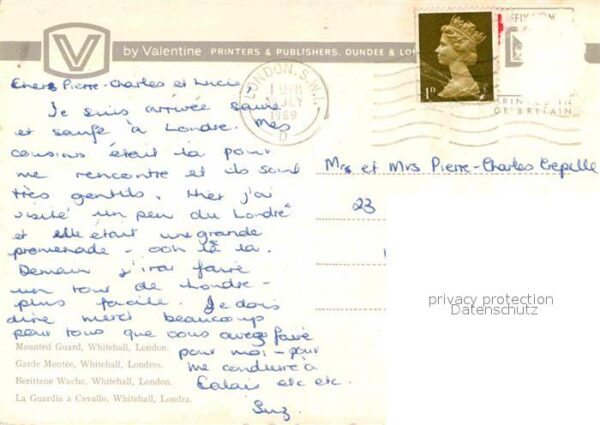 V
by Valentine PRINTERS & PUBLISHERS, DUNDEE & LON
LONDON. S.W.1.
1 PM
JULY
1969
D
1D
Chers Pierre-Charles et Lucie,
Je suis arrivée saine
et saufe à Londre. Mes
cousins était là pour
me rencontre et ils sont
très gentils. Hier j'ai
visité un peu du Londre
et elle était une grande
promenade - ooh là la.
Demain j'irai faire
un tour de Londre -
plus facile. Je dois
dire merci beaucoup
pour tous que vous avez faire
pour moi - pour
me conduire à
Calais etc etc.
Suz.
Mrs et Mrs Pierre-Charles Crepelle
23
privacy protection
Datenschutz
Mounted Guard, Whitehall, London.
Garde Montée, Whitehall, Londres.
Berittene Wache, Whitehall, London.
La Guardia a Cavallo, Whitehall, Londra.